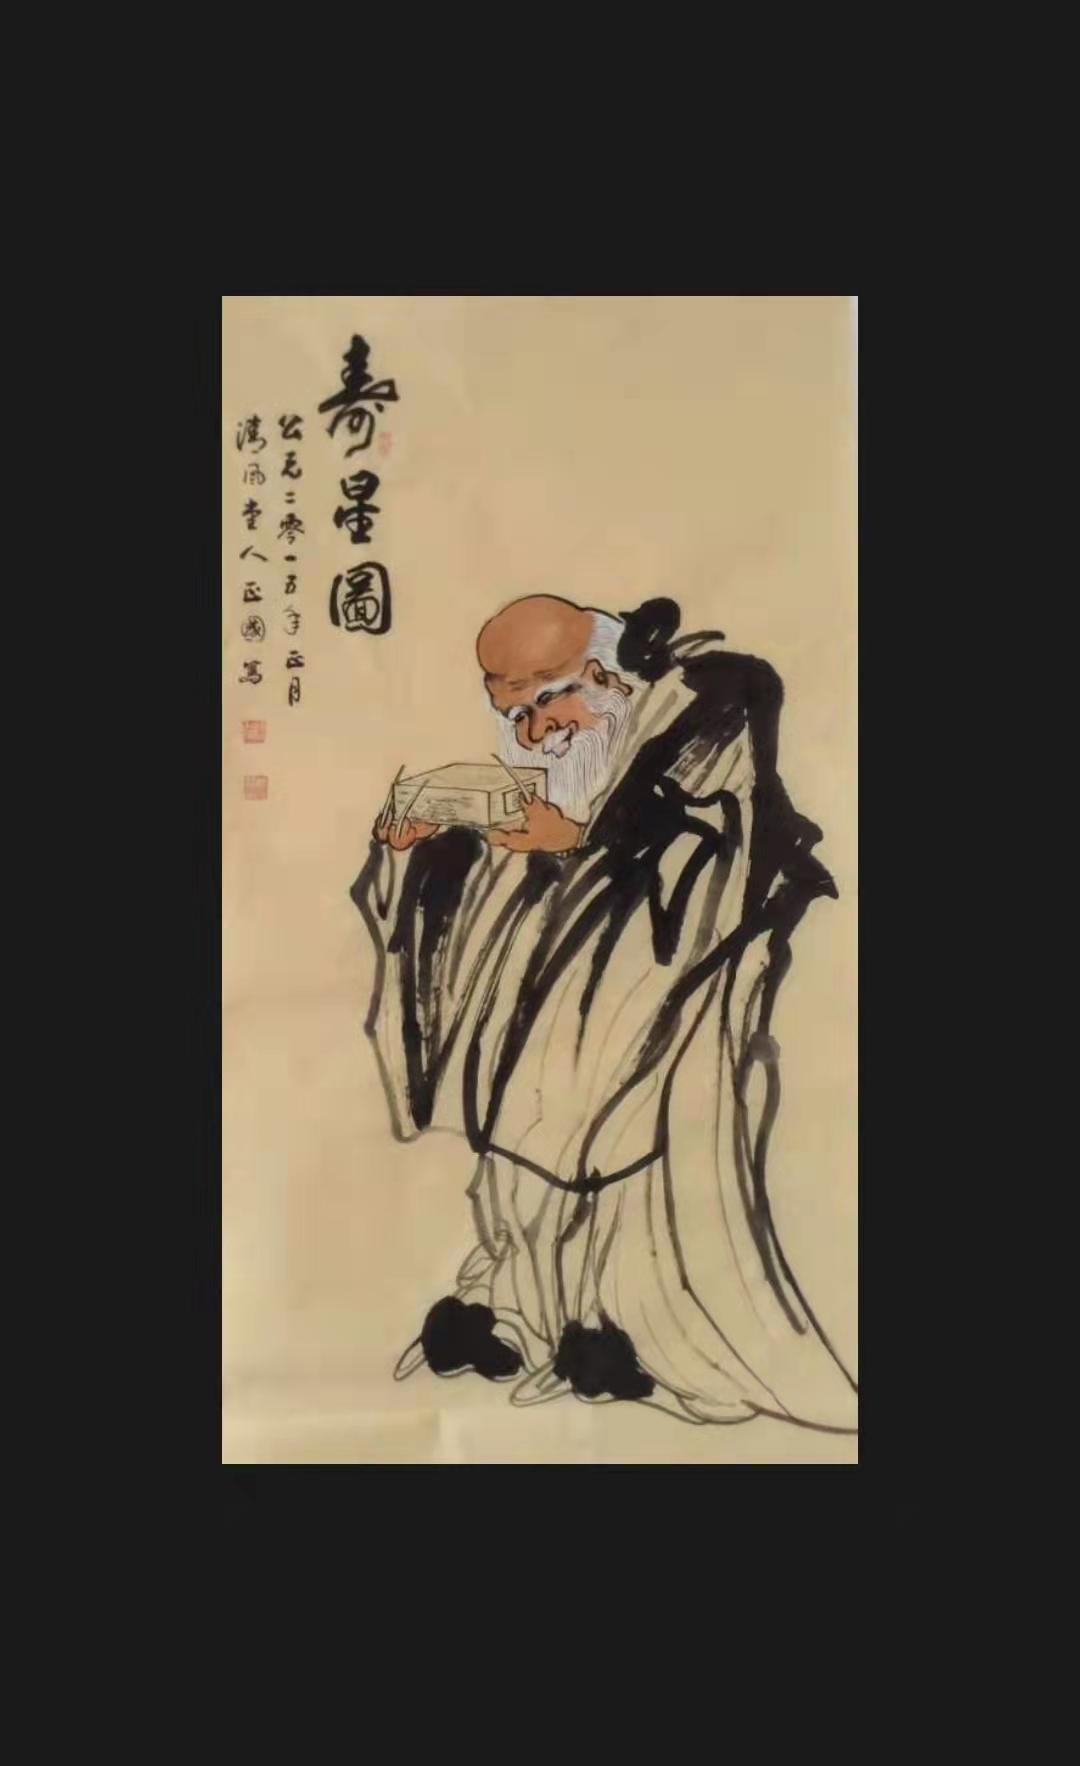 壽星圖
公元二零一五年正月
清風堂人正國寫